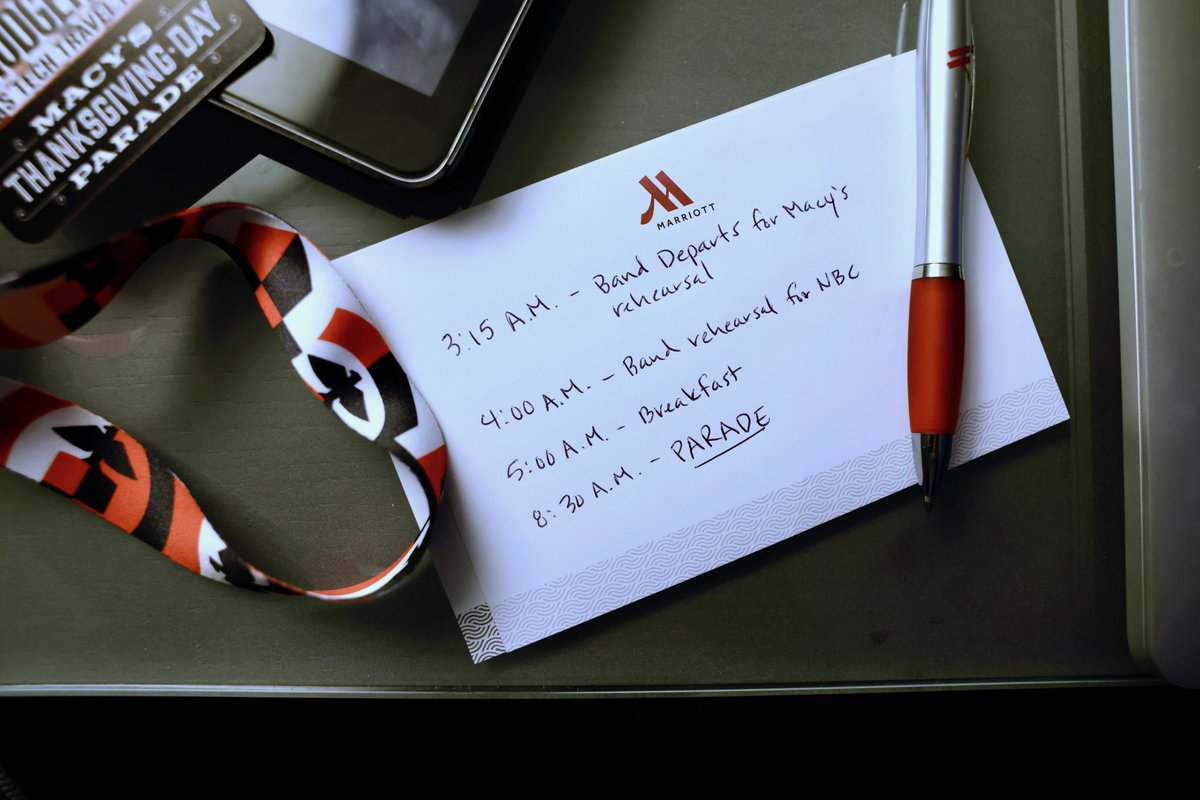 TECH TRAVEL
MACY'S
THANKSGIVING·DAY
PARADE
MARRIOTT
3:15 A.M. - Band Departs for Macy's
rehearsal
4:00 A.M. - Band rehearsal for NBC
5:00 A.M. - Breakfast
8:30 A.M. - PARADE